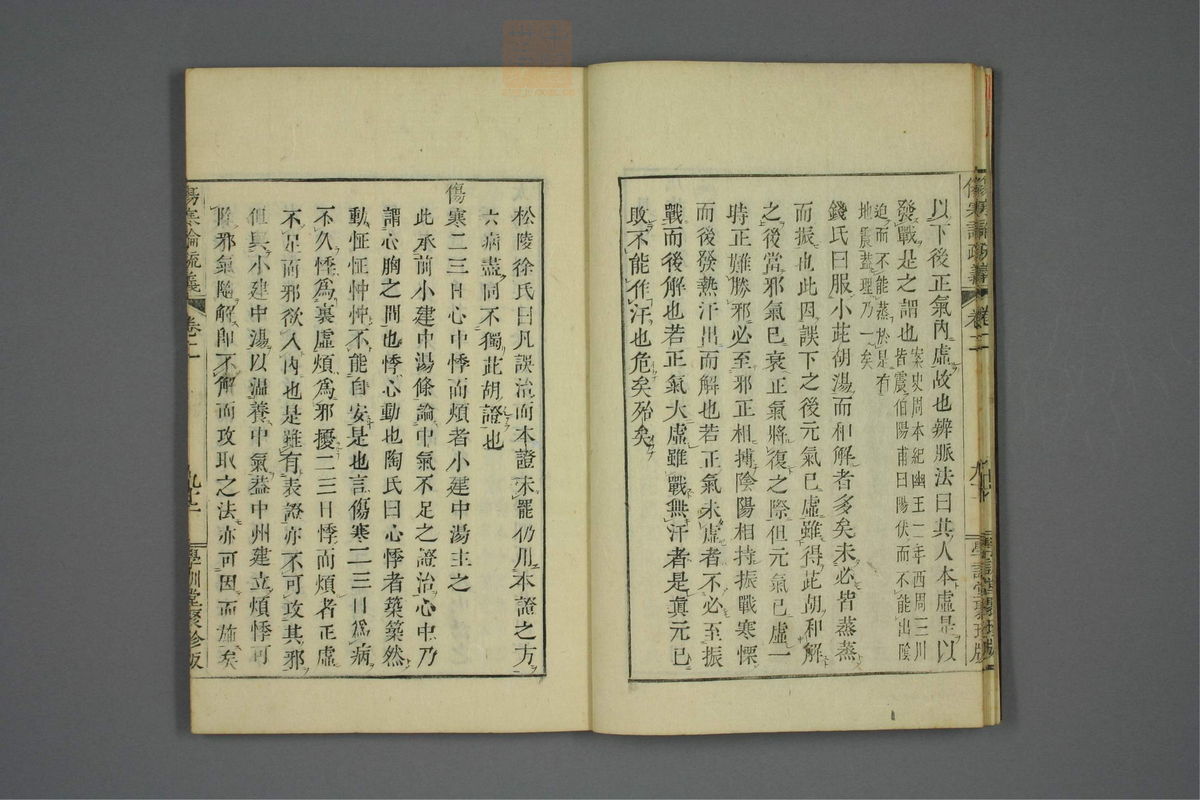 以下後正氣內虛故也辨脈法曰其人本虛是以
發戰是之謂也
案史周本紀幽王二年西周三川
皆震伯陽甫曰陽伏而不能出陰
迫而不能蒸於是有
地震蓋理乃一矣
錢氏曰服小茈胡湯而和解者多矣未必皆蒸蒸
而振也此因誤下之後元氣已虛雖得茈胡和解
之後當邪氣已衰正氣將復之際但元氣已虛一
時正難勝邪必至邪正相搏陰陽相持振戰寒慄
而後發熱汗出而解也若正氣未虛者不必至振
戰而後解也若正氣大虛雖戰無汗者是眞元已
敗不能作汗也危矣殆矣
松陵徐氏曰凡誤治而本證未罷仍用本證之方
六病盡同不獨茈胡證也
傷寒二三日心中悸而煩者小建中湯主之
此承前小建中湯條論中氣不足之證治心中乃
謂心胸之間也悸心動也陶氏曰心悸者築築然
動怔怔忡忡不能自安是也言傷寒二三日爲病
不久悸爲裏虛煩爲邪擾二三日悸而煩者正虛
不足而邪欲入內也是雖有表證亦不可攻其邪
但與小建中湯以温養中氣葢中州建立煩悸可
除邪氣隨解即不解而攻取之法亦可因而施矣
傷寒論疏義
卷二
學訓堂聚珍版